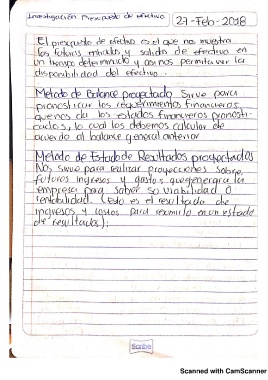 Investigación Presupuesto de efectivo
27-Feb-2018
El presupuesto de efectivo es el que nos muestra
los futuras entradas, y salidas de efectivo en
un tiempo determinado y así nos permita ver la
disponibilidad del efectivo.
Metodo de Balance proyectado Sirve para
pronosticar los requerimientos financieros,
que nos da los estados financieros pronosti-
cados, lo cual los debemos calcular de
acuerdo al balance general anterior
Metodo de Estado de Resultados proyectados
Nos sirve para realizar proyecciones sobre
futuros ingresos y gastos que generara la
empresa para saber su viabilidad o
rentabilidad. (esto es el resultado de
ingresos y costos para resumirlo en un estado
de resultados);
Scribe
Scanned with CamScanner